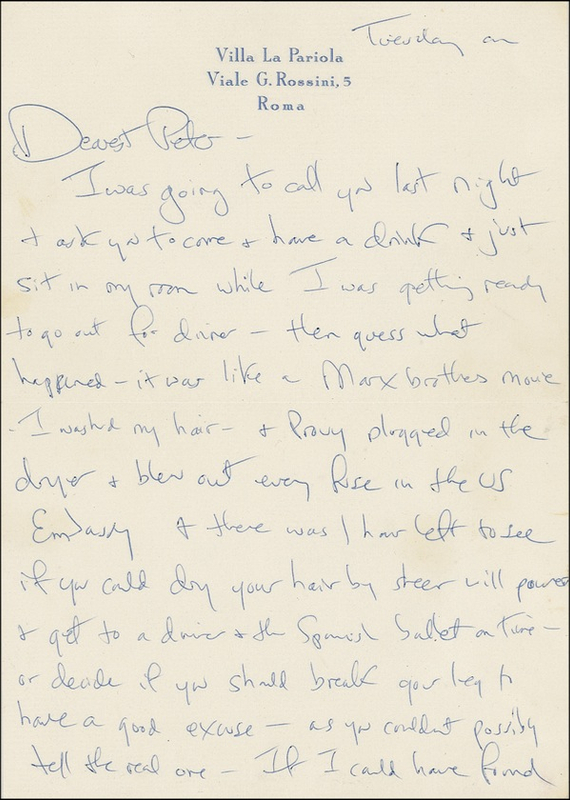 Tuesday am
Villa La Pariola
Viale G. Rossini, 5
Roma
Dearest Peter —
I was going to call you last night
+ ask you to come + have a drink + just
sit in my room while I was getting ready
to go out for dinner — then guess what
happened — it was like a Marx brothers movie
- I washed my hair — + Provy plugged in the
dryer + blew out every fuse in the US
Embassy + there was 1 hour left to see
if you could dry your hair by sheer will power
+ get to a dinner + the Spanish ballet on time —
or decide if you should break your leg to
have a good excuse — as you couldn't possibly
tell the real one — If I could have found